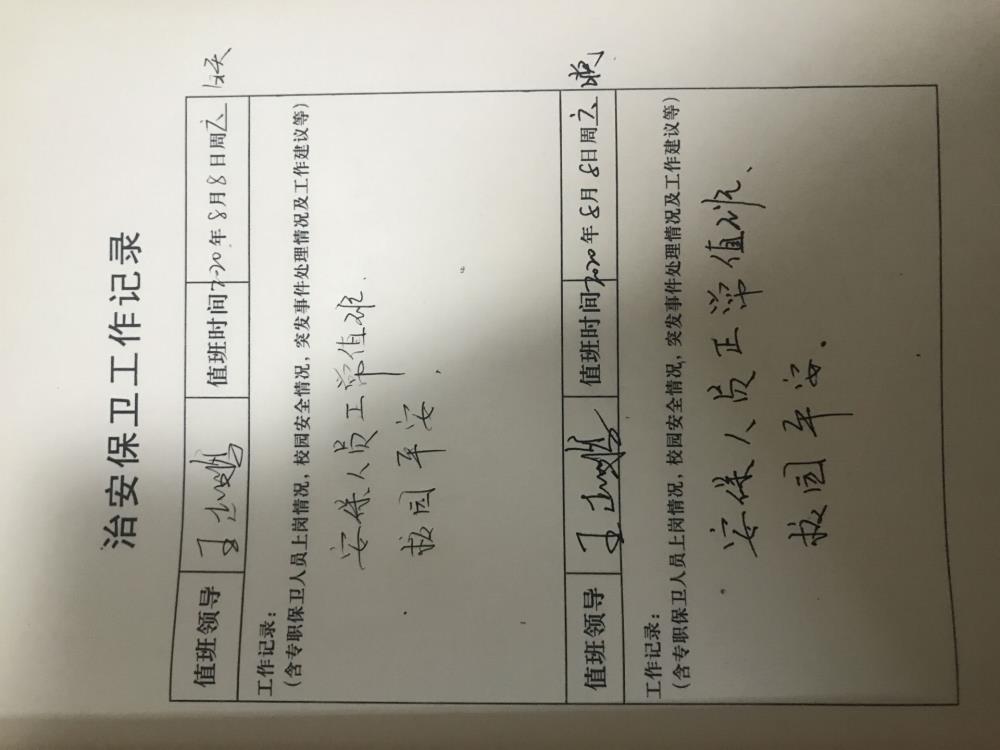 治安保卫工作记录
值班领导 王 值班时间 2020年8月8日周六 白天
工作记录：
（含专职保卫人员上岗情况，校园安全情况，突发事件处理情况及工作建议等）
安保人员正常值班.
校园平安.
值班领导 王 值班时间 2020年8月8日周六 晚
工作记录：
（含专职保卫人员上岗情况，校园安全情况，突发事件处理情况及工作建议等）
安保人员正常值班、
校园平安.